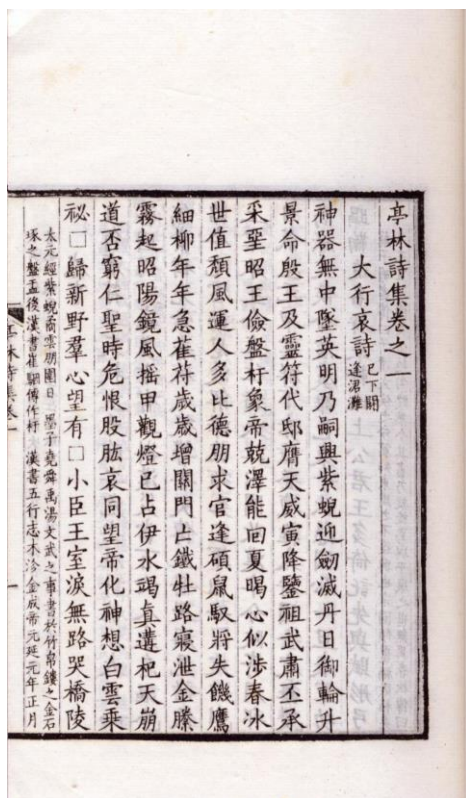 亭林詩集卷之一
大行哀詩 已下閼逢涒灘
神器無中墜英明乃嗣興紫蜺迎劒滅丹日御輪升
景命殷王及靈符代邸膺天威寅降鑒祖武肅丕承
采堊昭王儉盤杅象帝兢澤能回夏暍心似涉春冰
世值頹風運人多比德朋求官逢碩鼠馭將失饑鷹
細柳年年急萑苻歲歲增關門亡鐵牡路寢泄金縢
霧起昭陽鏡風搖甲觀燈已占伊水竭真遘杞天崩
道否窮仁聖時危恨股肱哀同望帝化神想白雲乗
祕□歸新野羣心望有□小臣王室淚無路哭橋陵
太元經紫蜺矞雲朋圍日 墨子堯舜禹湯文武之事書於竹帛鏤之金石
琢之盤盂後漢書崔駰傳作杅 漢書五行志木沴金成帝元延元年正月
亭林詩集卷一
一